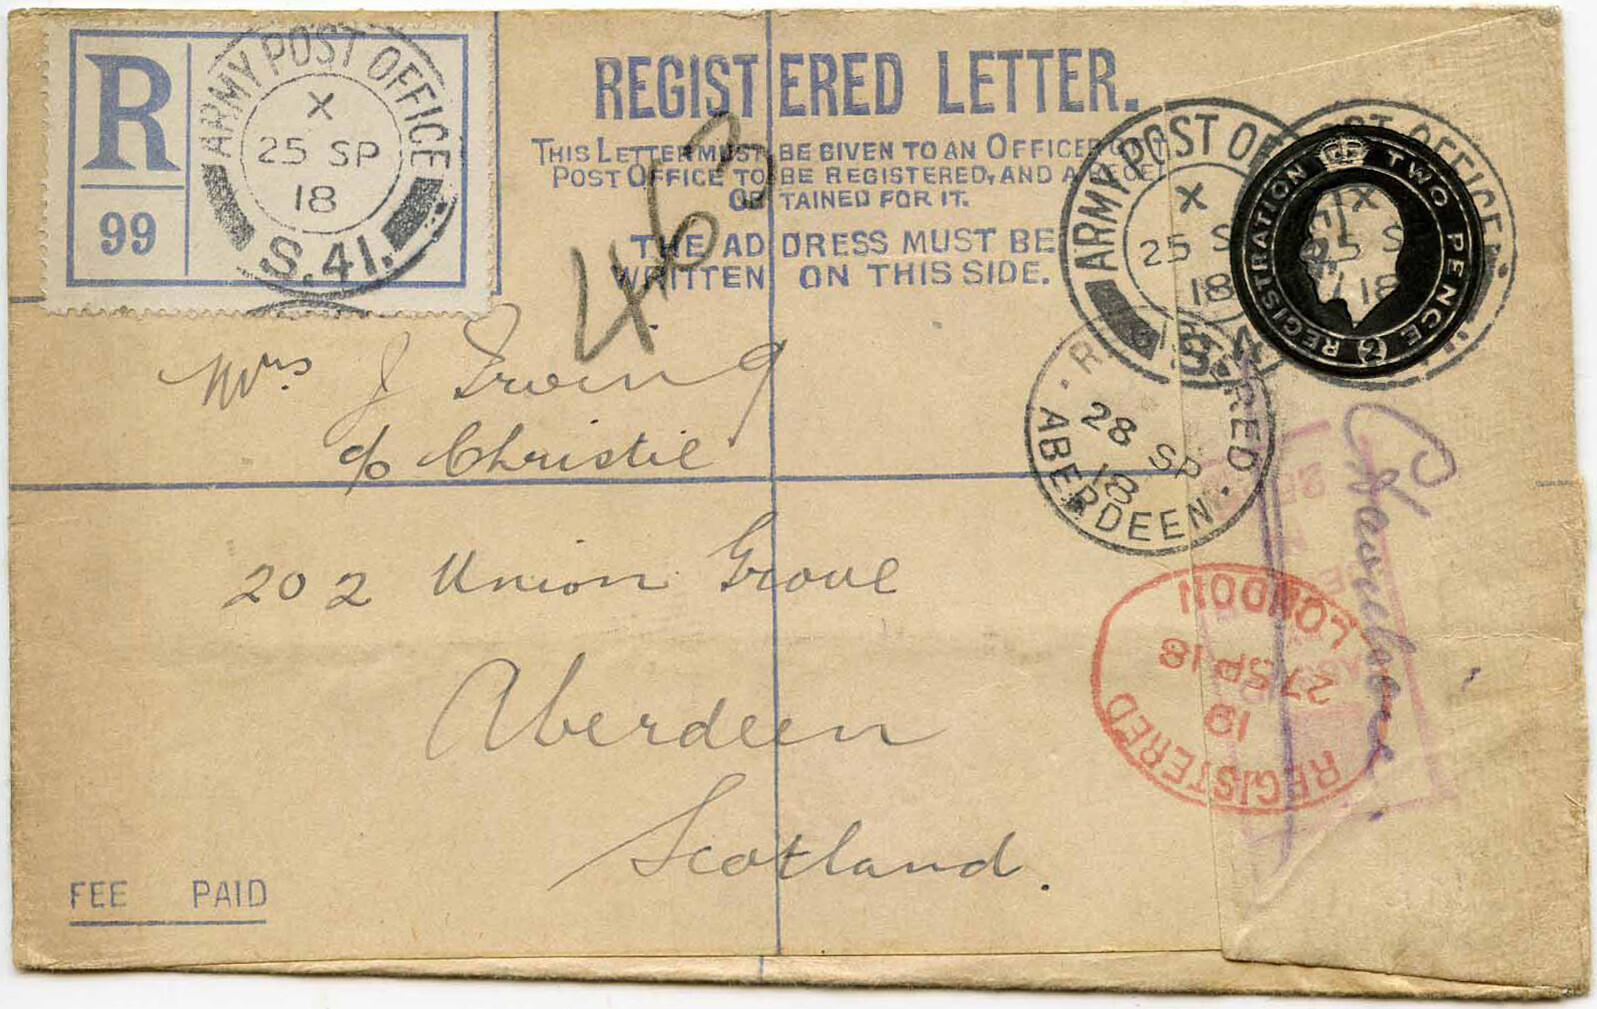 R
99
ARMY POST OFFICE
X
25 SP
18
S.41.
REGISTERED LETTER.
THIS LETTER MUST BE GIVEN TO AN OFFICER
POST OFFICE TO BE REGISTERED, AND A RECEI
OBTAINED FOR IT.
THE ADDRESS MUST BE
WRITTEN ON THIS SIDE.
463
ARMY POST OF
X
25 S
18
ST OFFICE
X
25 S
18
REGISTRATION TWO PENCE
REGISTRATION
2
Mrs J Irving
c/o Christie
202 Union Grove
Aberdeen
Scotland.
REGISTERED
28 SP
18
ABERDEEN
REGISTERED
19
27 SP 18
LONDON
FEE PAID